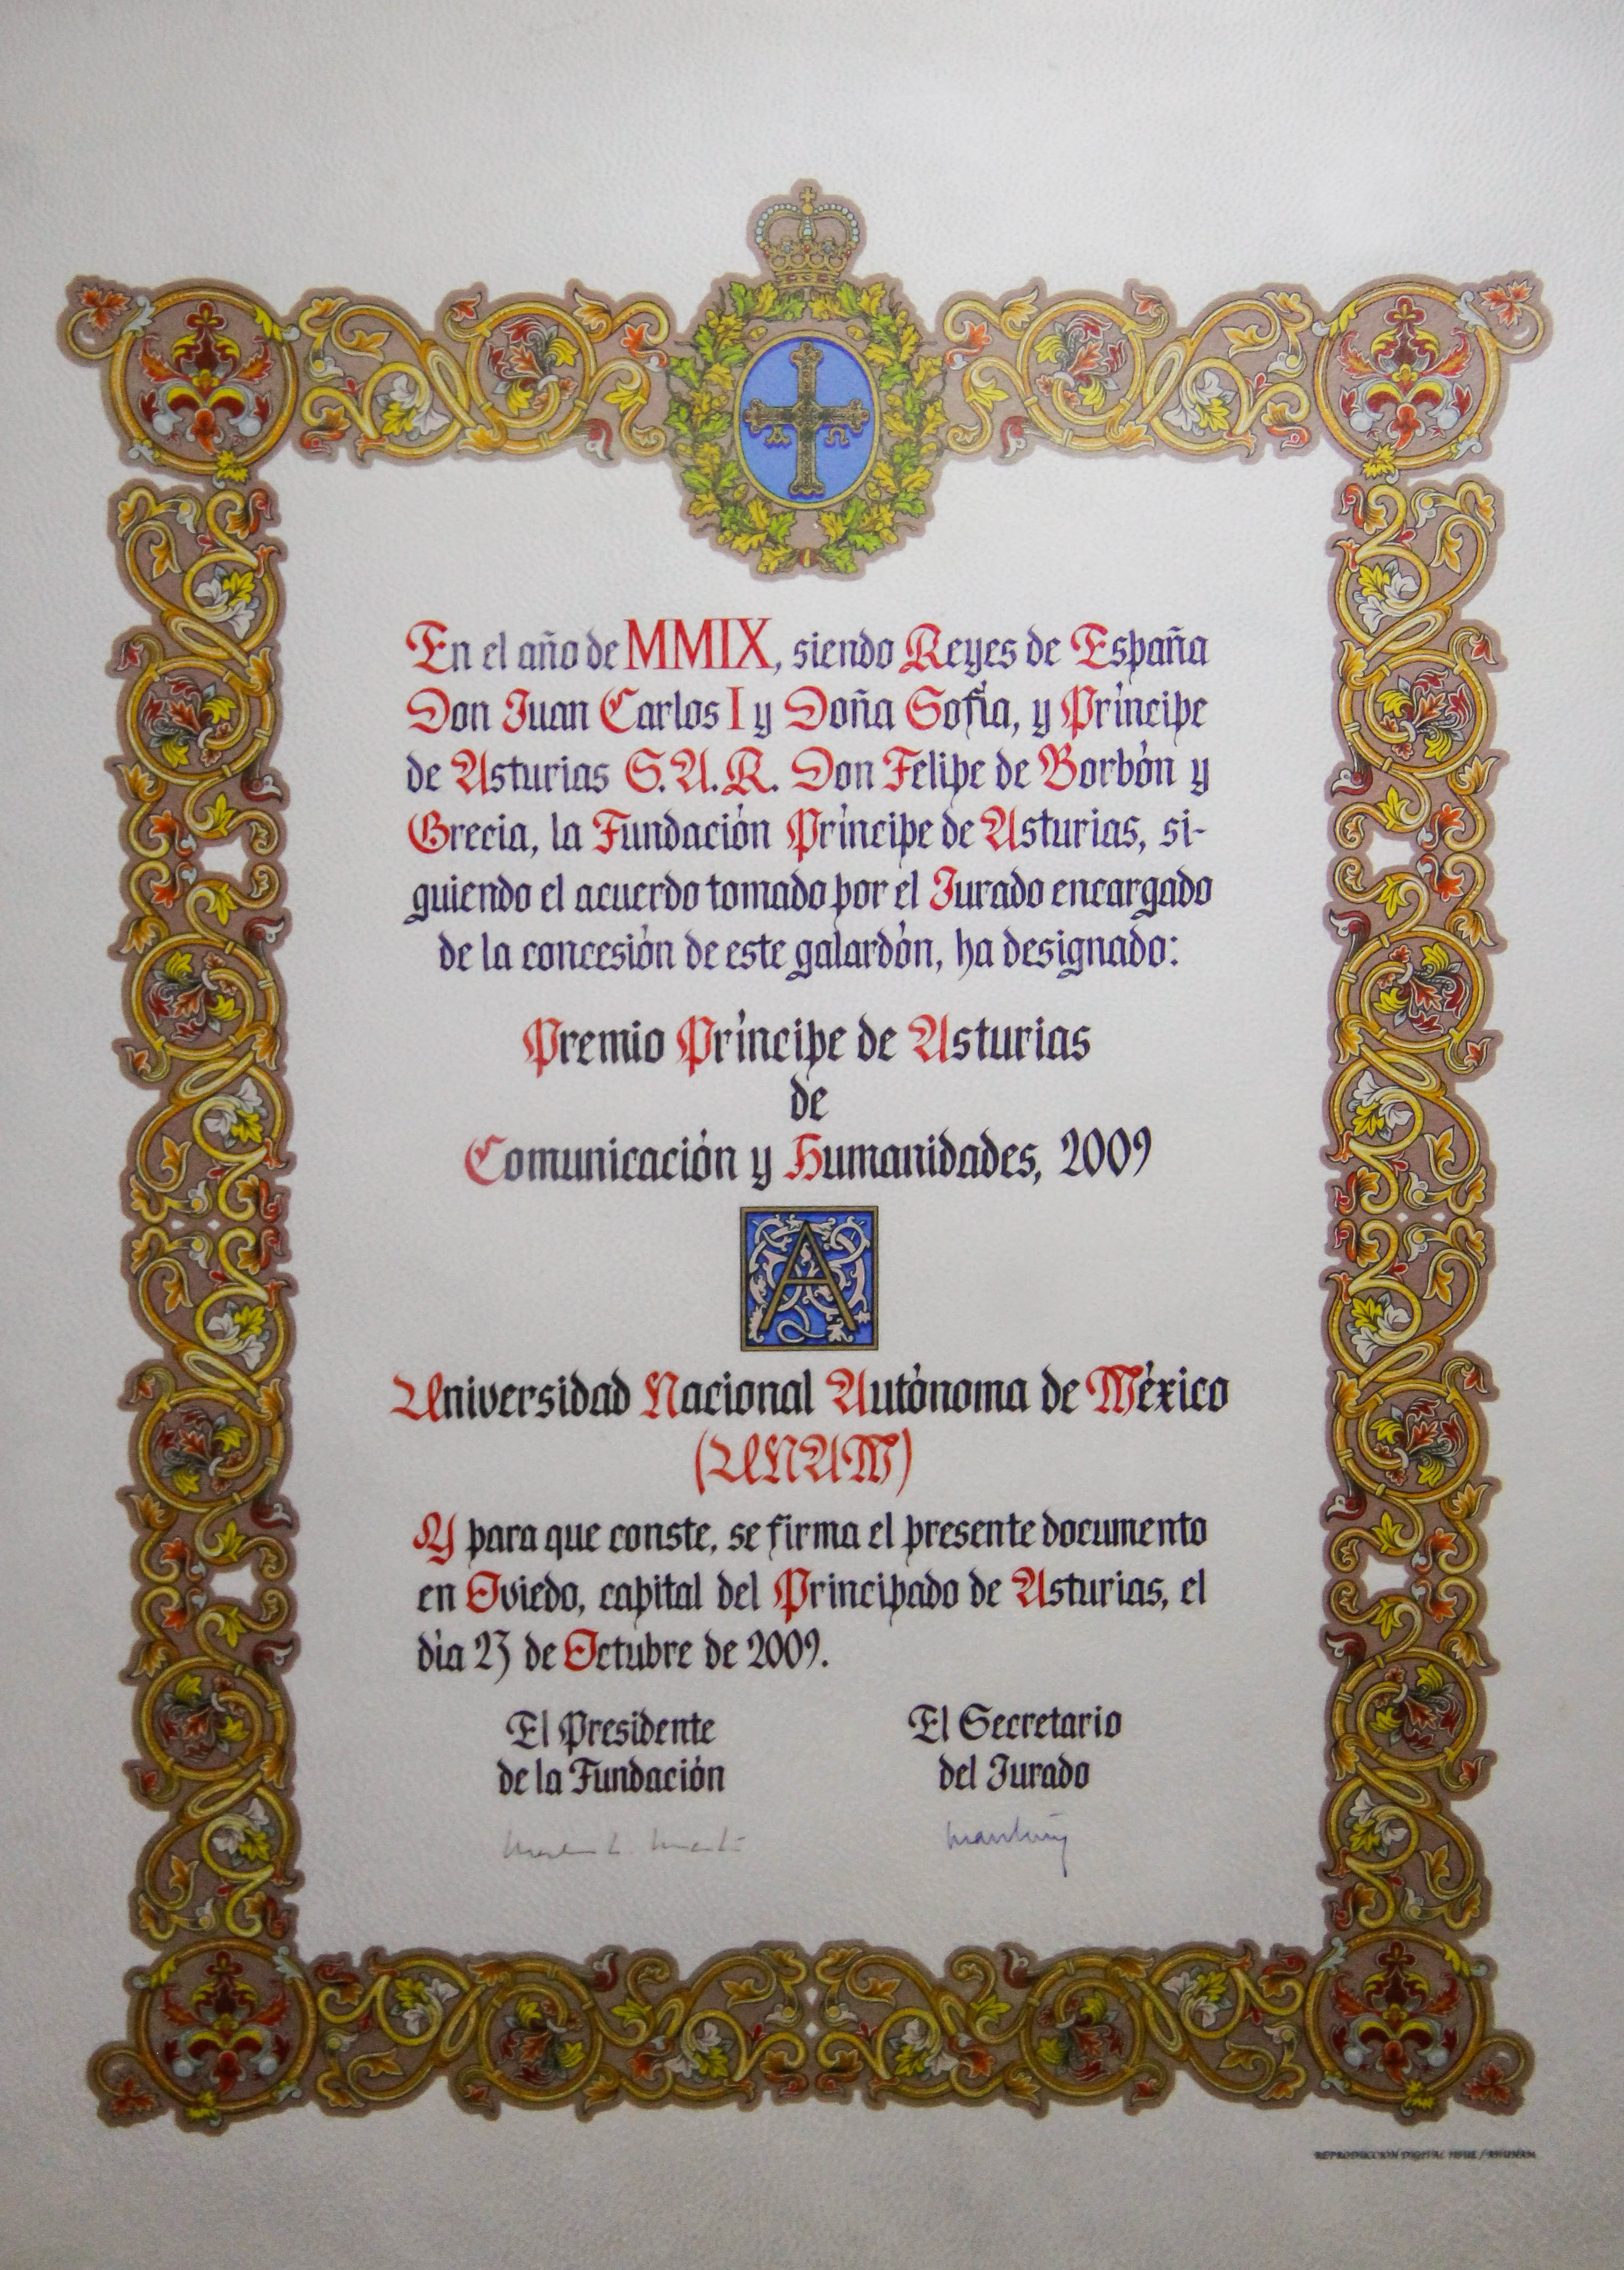 En el año de MMIX, siendo Reyes de España
Don Juan Carlos I y Doña Sofía, y Príncipe
de Asturias S.A.R. Don Felipe de Borbón y
Grecia, la Fundación Príncipe de Asturias, si-
guiendo el acuerdo tomado por el Jurado encargado
de la concesión de este galardón, ha designado:
Premio Príncipe de Asturias
de
Comunicación y Humanidades, 2009
A
Universidad Nacional Autónoma de México
(UNAM)
Y para que conste, se firma el presente documento
en Oviedo, capital del Principado de Asturias, el
día 23 de Octubre de 2009.
El Presidente
de la Fundación
El Secretario
del Jurado
REPRODUCCIÓN DIGITAL IISUE / AHUNAM